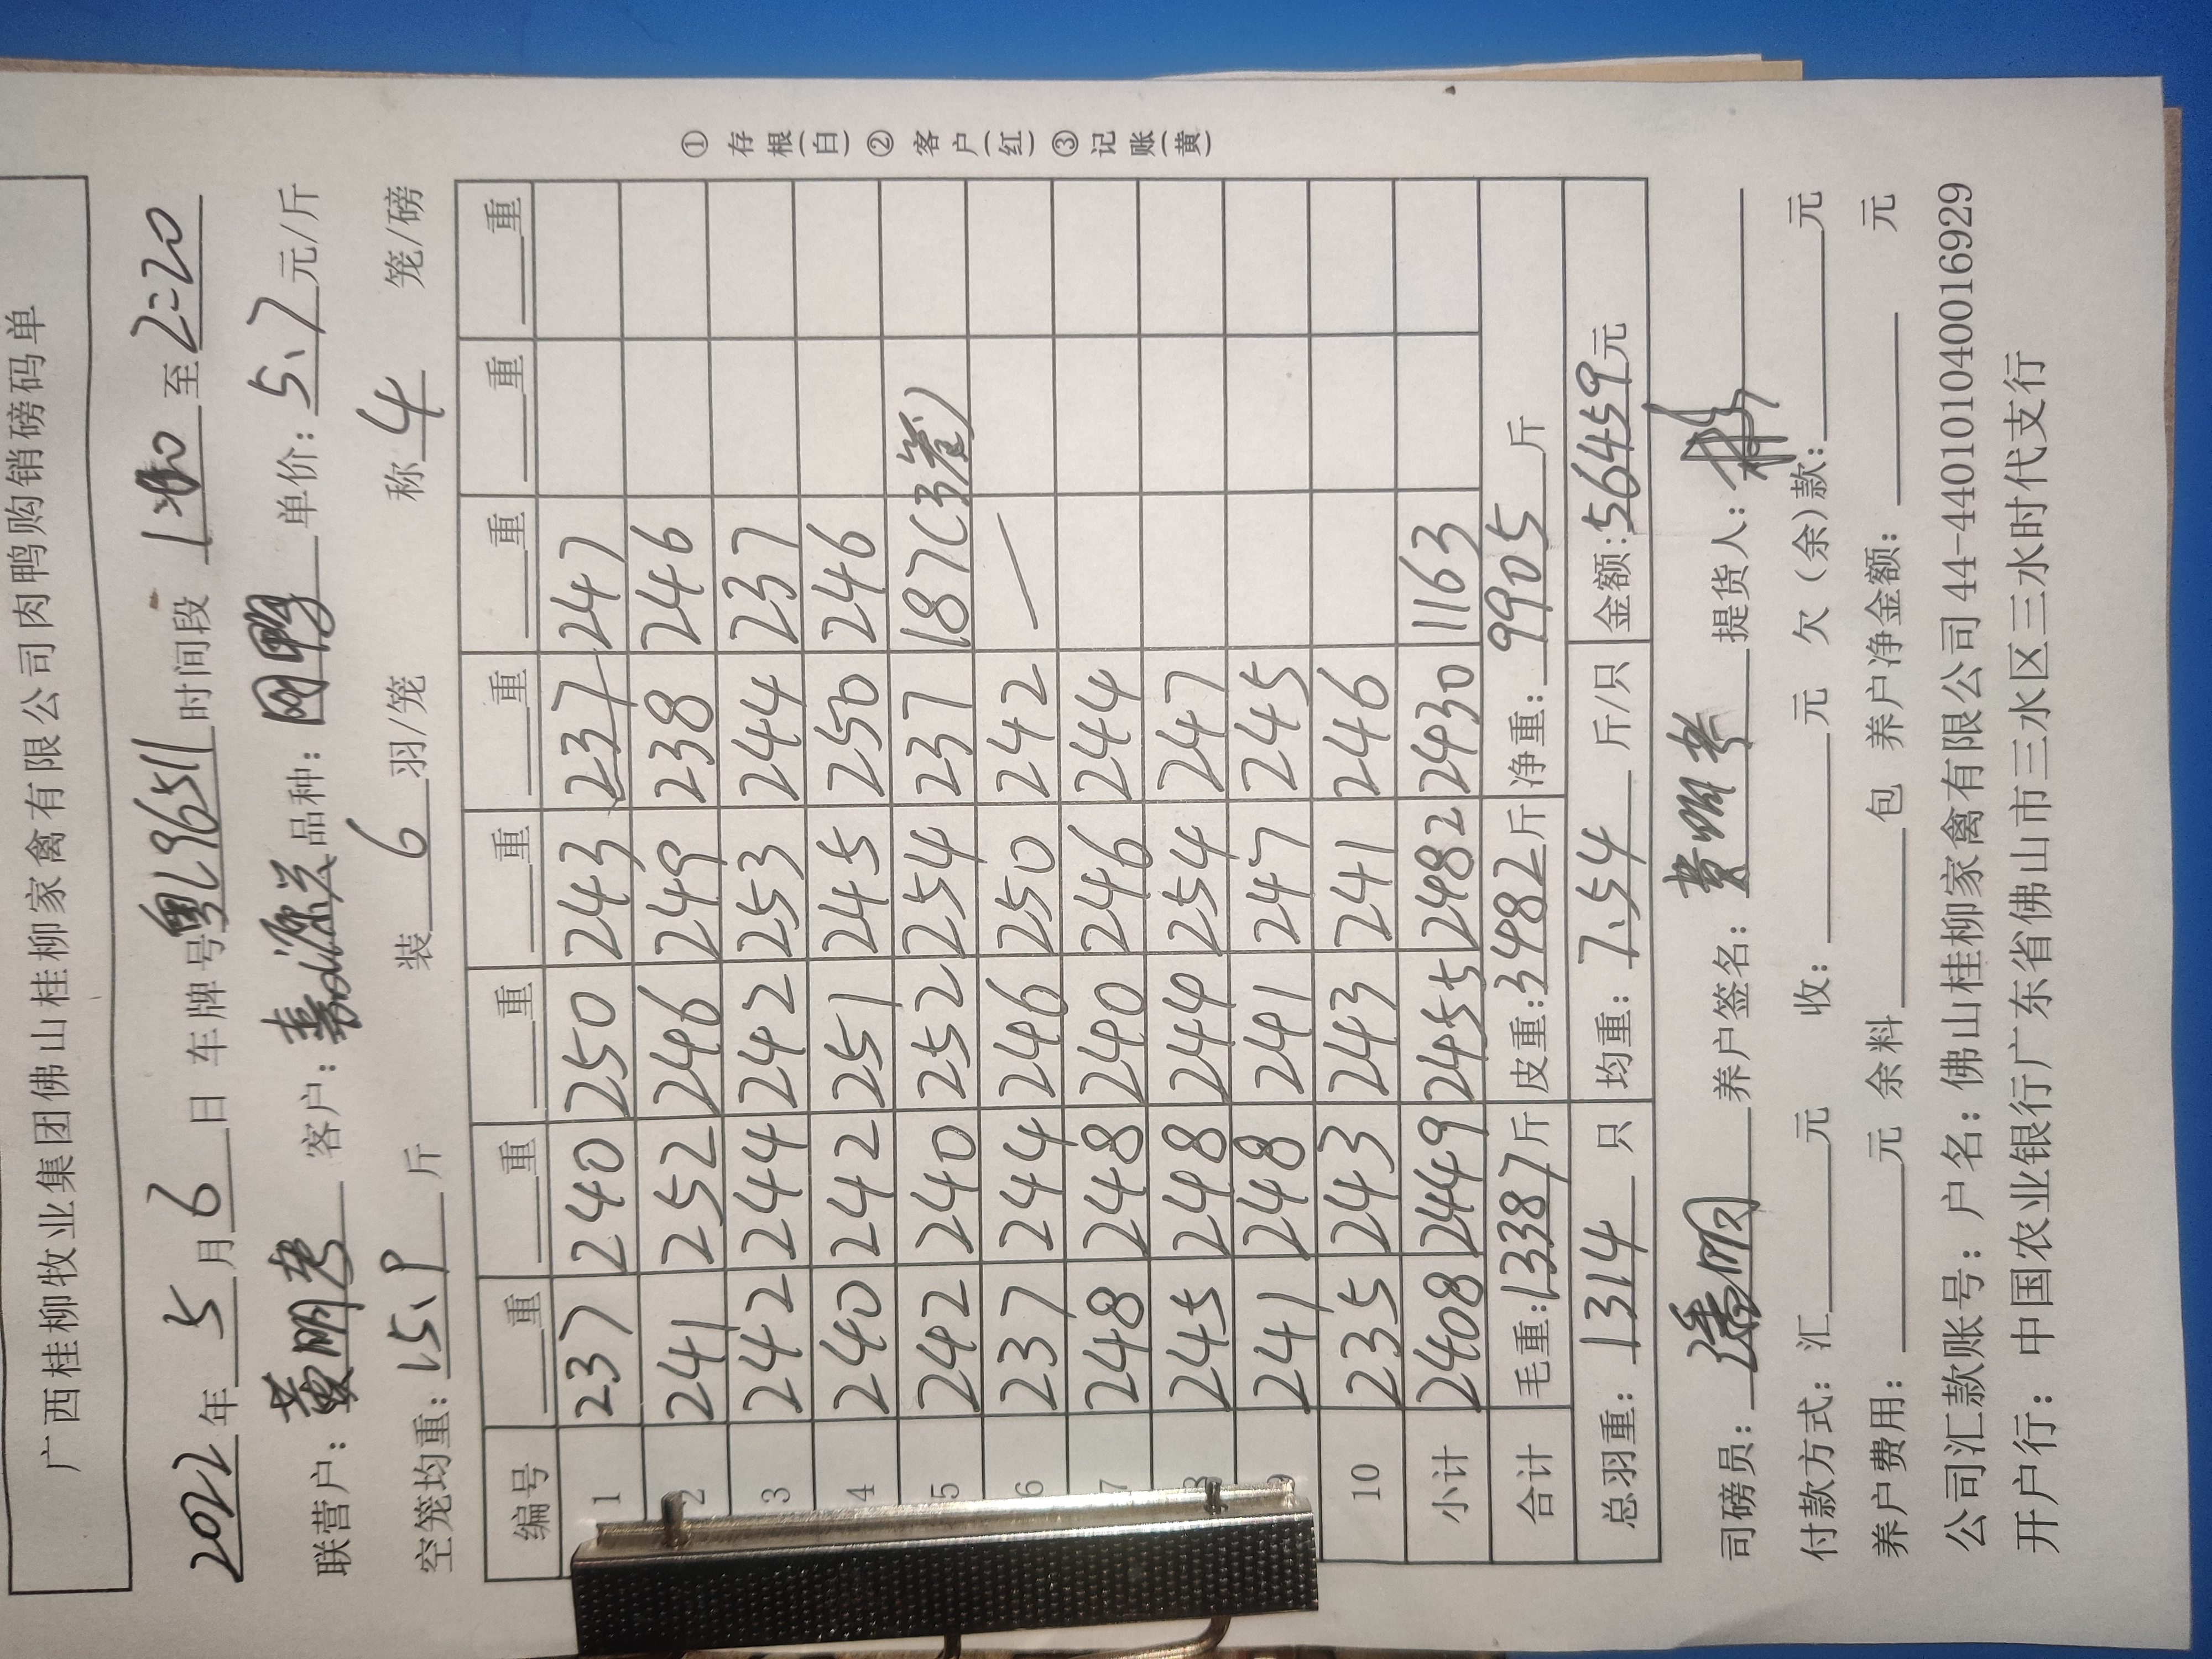 广西桂柳牧业集团佛山桂柳家禽有限公司肉鸭购销磅码单
2022年5月6日 车牌号粤L9651 时间段 至2:20
联营户:黄明考 客户:嘉源兴 品种: 单价:5.7元/斤
空笼均重:15.9斤 装6羽/笼 称4笼/磅
编号 重 重 重 重 重 重 重 重
1 237 240 250 243 237 247
2 241 252 246 249 238 246
3 242 244 242 253 244 237
4 240 242 251 245 250 246
5 242 240 252 254 237 187(3笼)
6 237 244 246 250 242 —
7 248 248 240 246 244
8 245 248 244 254 247
9 241 248 241 247 245
10 235 243 243 241 246
小计 2408 2449 2455 2482 2430 1163
合计 毛重:13387斤 皮重:3482斤 净重:9905斤
总羽重:1314只 均重:7.54斤/只 金额:56459元
司磅员: 养户签名:黄明考 提货人:
付款方式:汇 元 收: 元 欠(余)款: 元
养户费用: 元 余料 包 养户净金额: 元
公司汇款账号:户名:佛山桂柳家禽有限公司44-440101040016929
开户行:中国农业银行广东省佛山市三水区三水时代支行
① 存根(白) ② 客户(红) ③ 记账(黄)